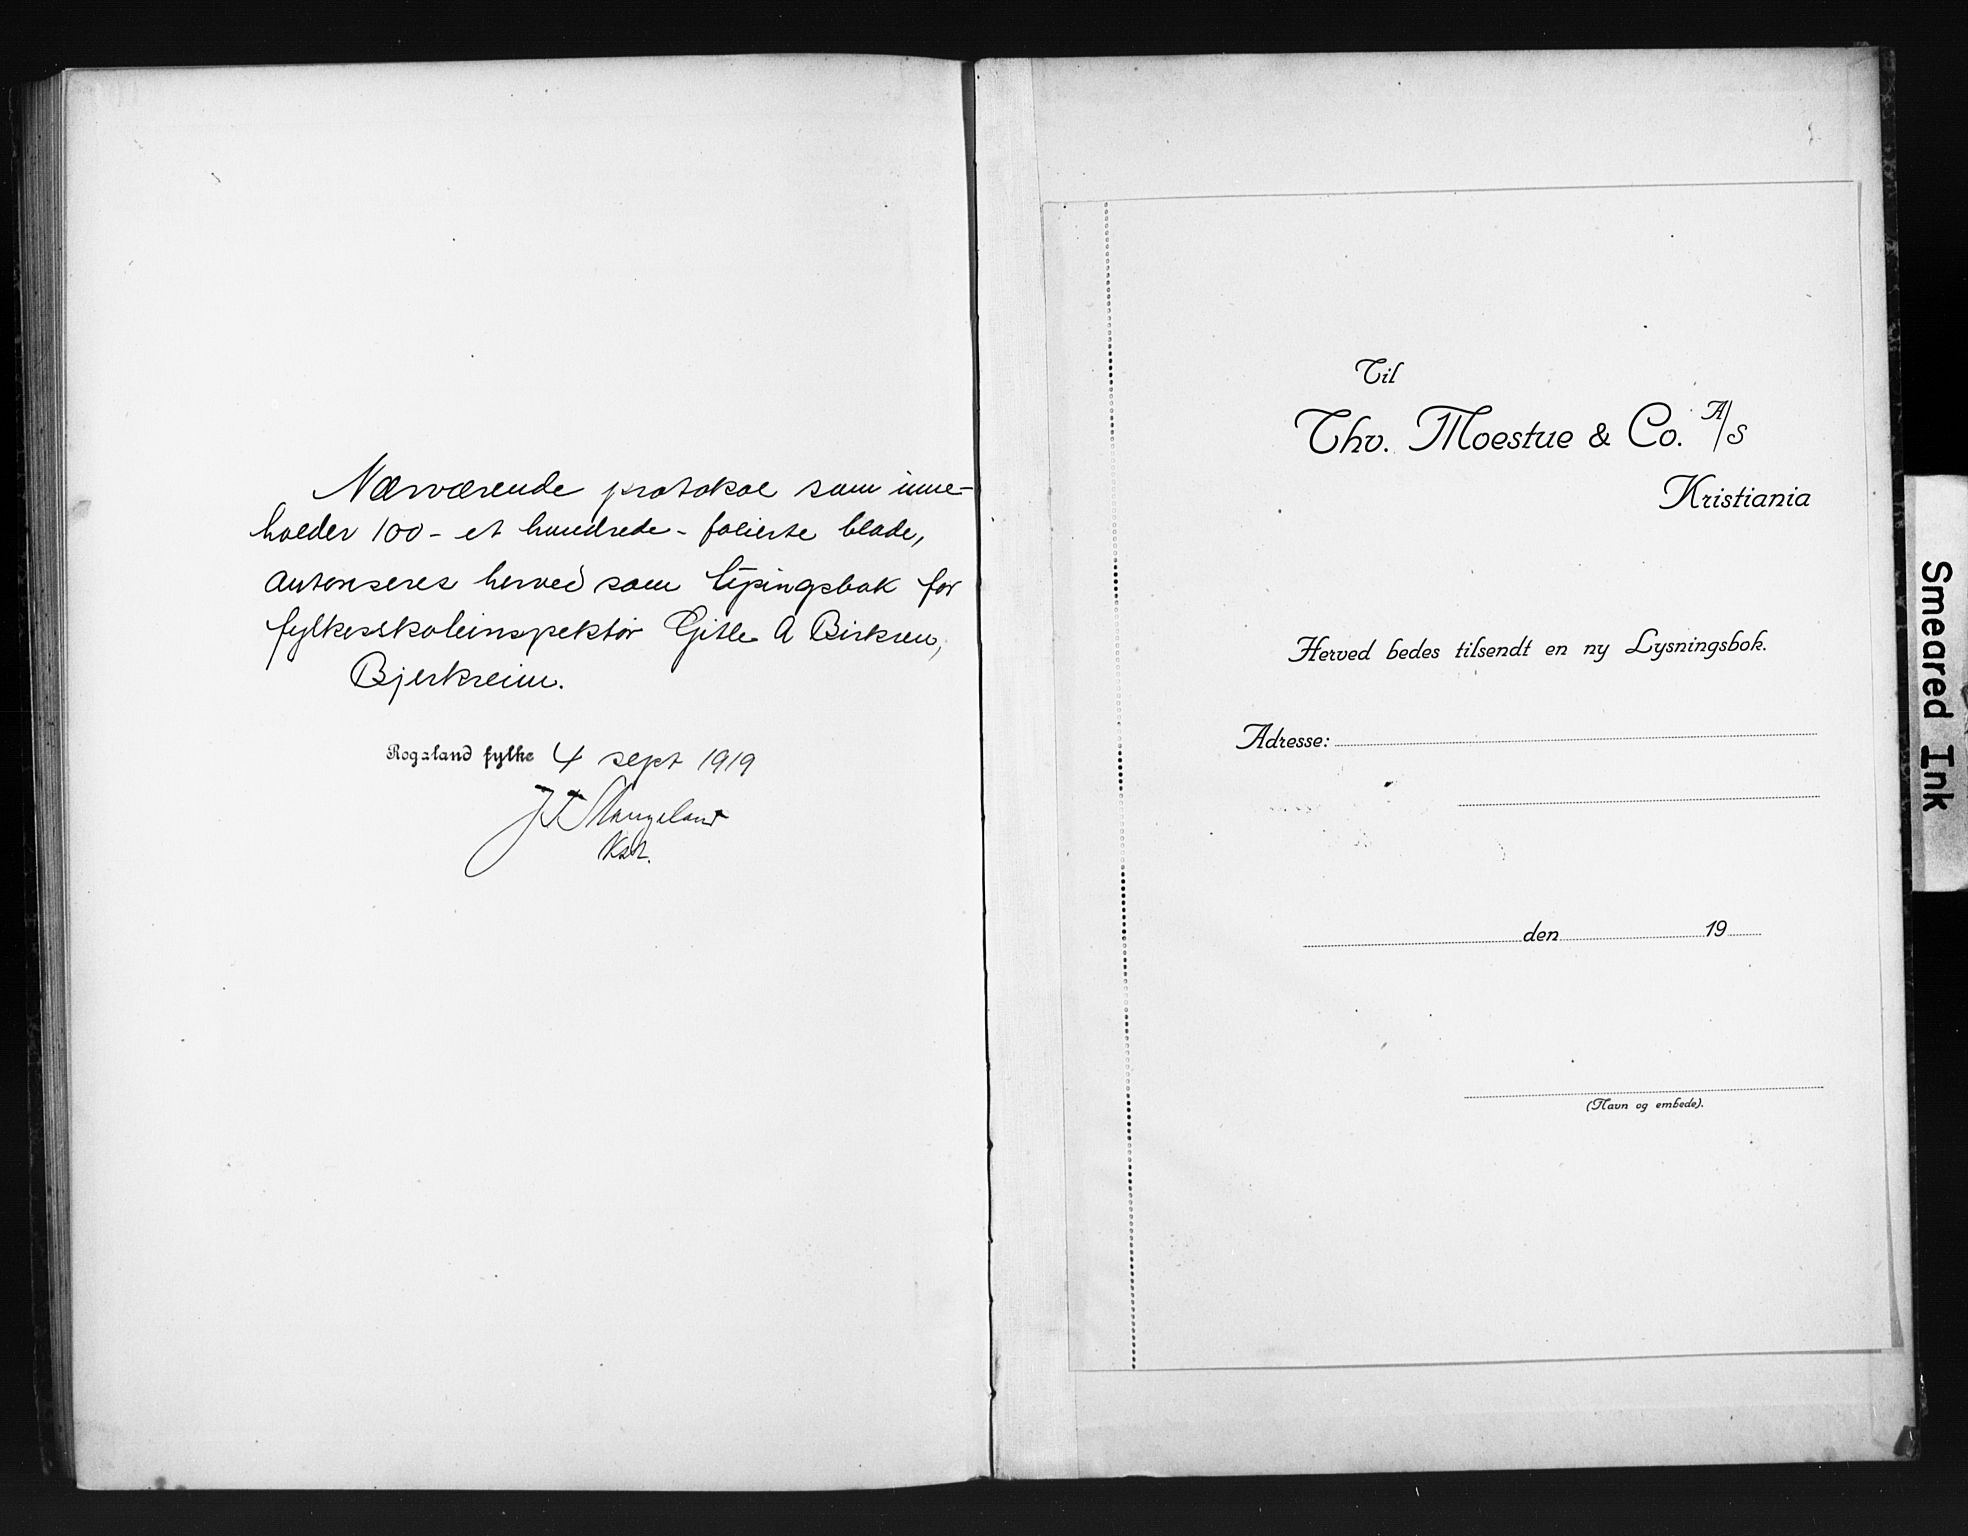 Nærværende protokol som inne-
holder 100 - et hundrede - folierte blade,
autoriseres herved som lysningsbok for
fylkesskoleinspektør Gitle A Birkren,
Bjerkreim.
Rogaland fylke 4 sept 1919
J T Mangeland
Kst.
Til
Thv. Moestue & Co. A/S
Kristiania
Herved bedes tilsendt en ny Lysningsbok.
Adresse:
den 19
(Navn og embede).
Smeared Ink